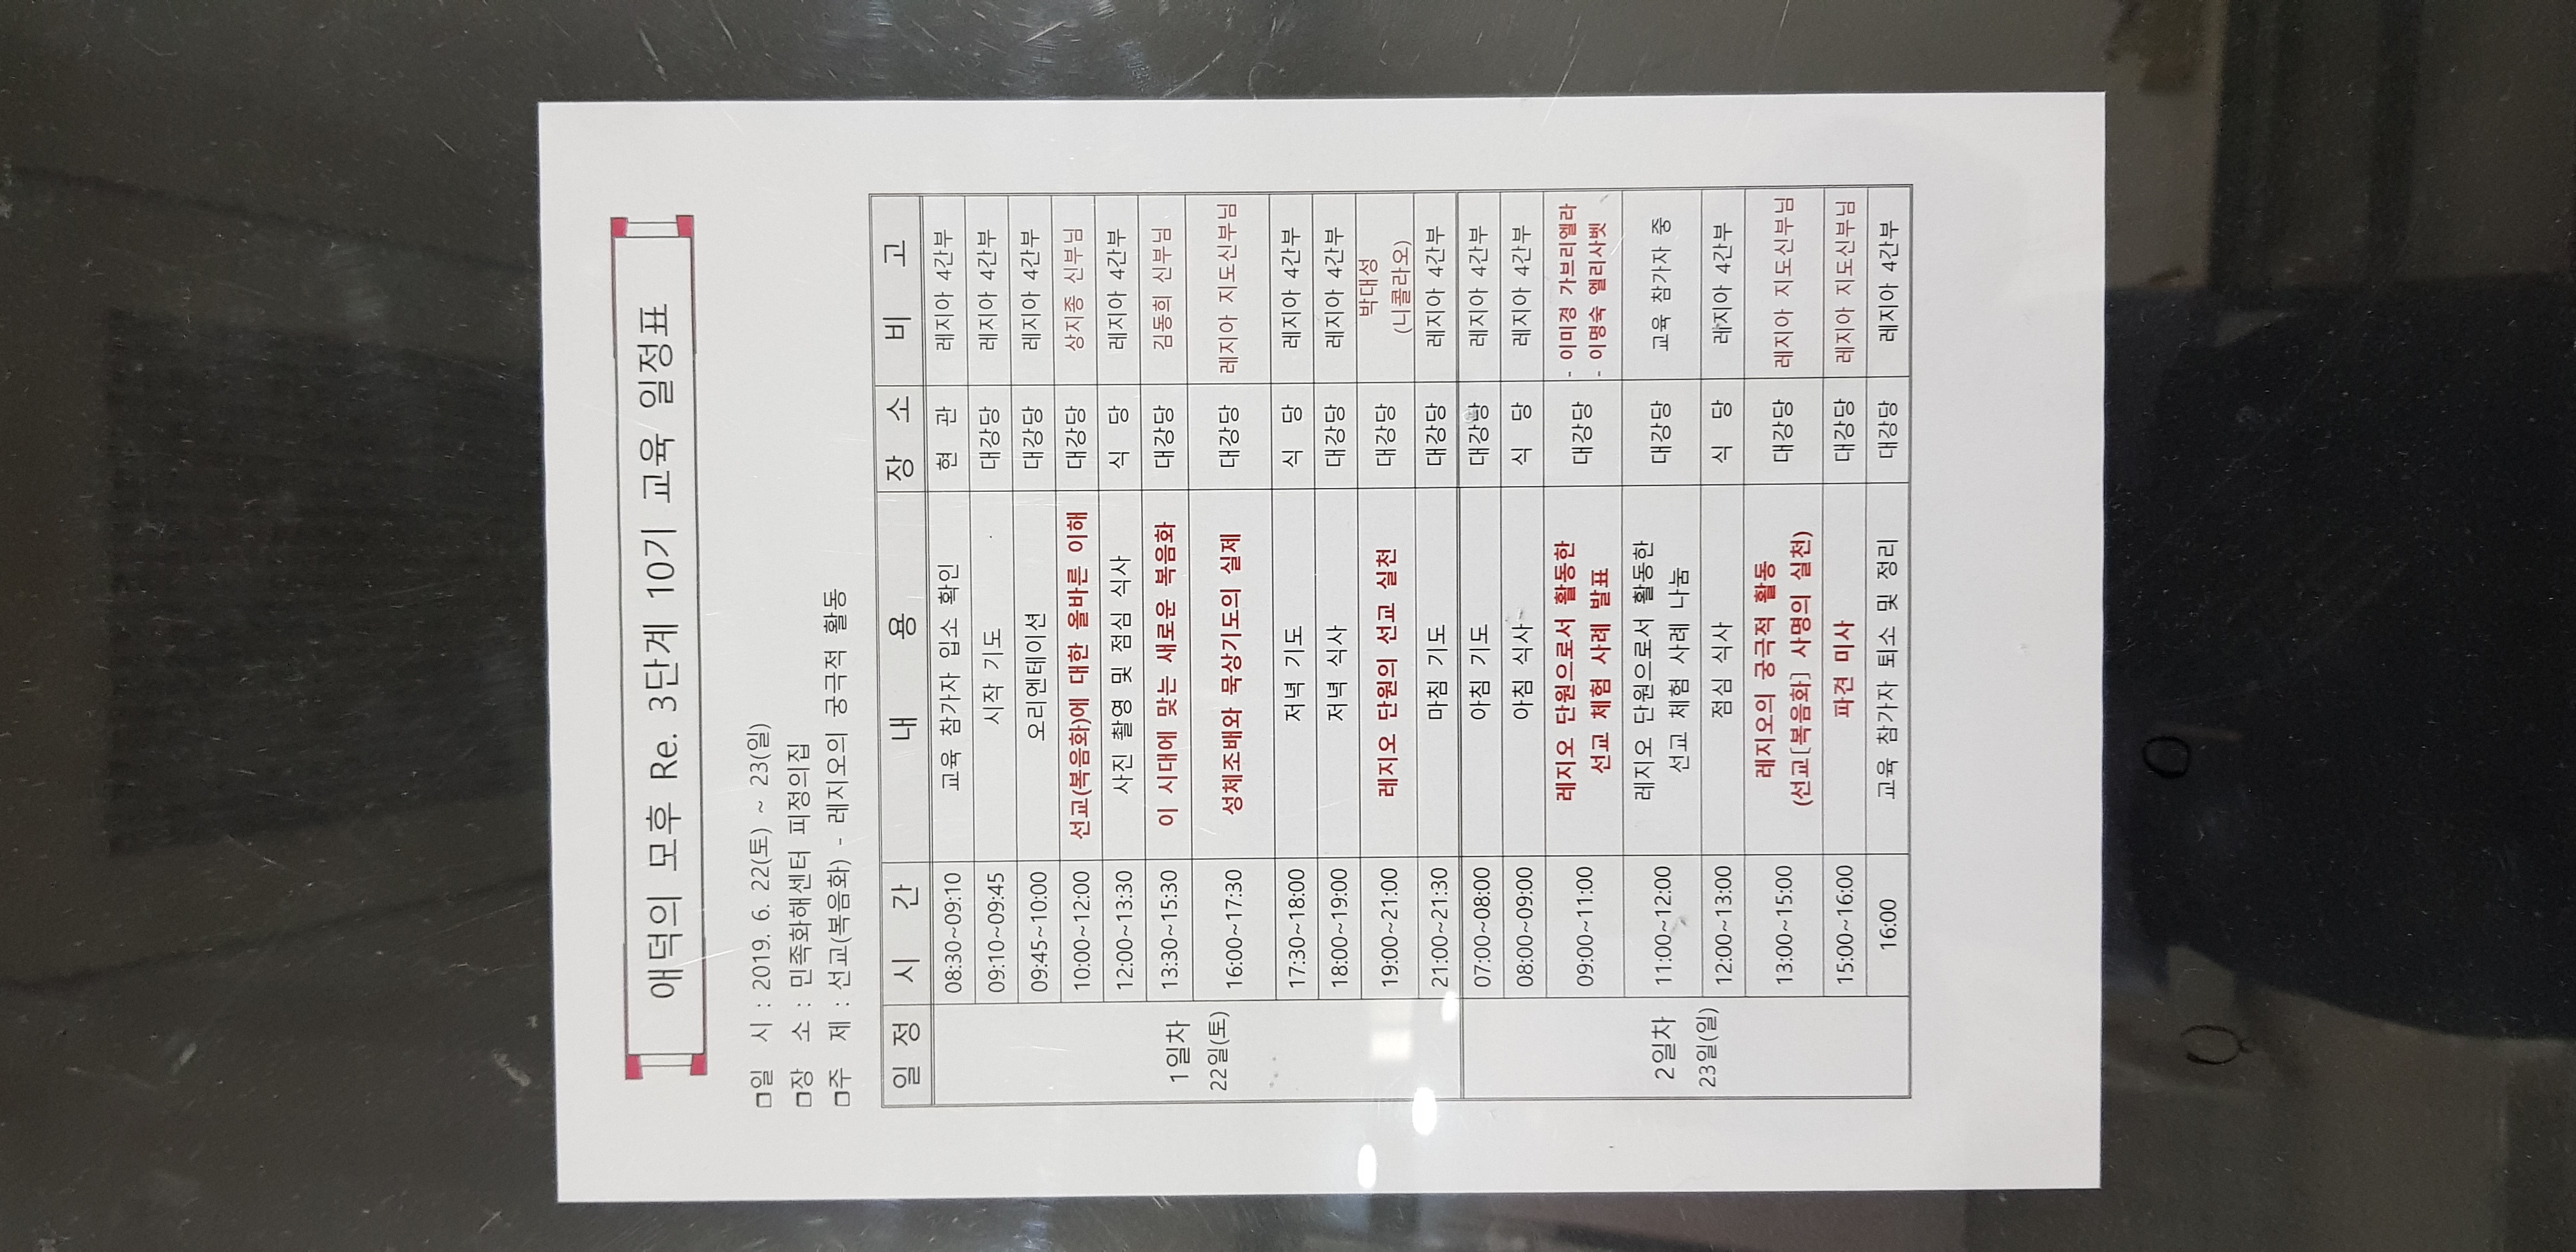 애덕의 모후 Re. 3단계 10기 교육 일정표
□일 시 : 2019. 6. 22(토) ~ 23(일)
□장 소 : 민족화해센터 피정의집
□주 제 : 선교(복음화) - 레지오의 궁극적 활동
일 정 시 간 내 용 장 소 비 고
1일차
22일(토)
08:30~09:10 교육 참가자 입소 확인 현 관 레지아 4간부
09:10~09:45 시작 기도 대강당 레지아 4간부
09:45~10:00 오리엔테이션 대강당 레지아 4간부
10:00~12:00 선교(복음화)에 대한 올바른 이해 대강당 상지종 신부님
12:00~13:30 사진 촬영 및 점심 식사 식 당 레지아 4간부
13:30~15:30 이 시대에 맞는 새로운 복음화 대강당 김동희 신부님
16:00~17:30 성체조배와 묵상기도의 실제 대강당 레지아 지도신부님
17:30~18:00 저녁 기도 식 당 레지아 4간부
18:00~19:00 저녁 식사 대강당 레지아 4간부
19:00~21:00 레지오 단원의 선교 실천 대강당 박대성
(니콜라오)
21:00~21:30 마침 기도 대강당 레지아 4간부
2일차
23일(일)
07:00~08:00 아침 기도 대강당 레지아 4간부
08:00~09:00 아침 식사 식 당 레지아 4간부
09:00~11:00 레지오 단원으로서 활동한 대강당 - 이미경 가브리엘라
선교 체험 사례 발표 - 이명숙 엘리사벳
11:00~12:00 레지오 단원으로서 활동한 대강당 교육 참가자 중
선교 체험 사례 나눔
12:00~13:00 점심 식사 식 당 레지아 4간부
13:00~15:00 레지오의 궁극적 활동 대강당 레지아 지도신부님
(선교[복음화] 사명의 실천)
15:00~16:00 파견 미사 대강당 레지아 지도신부님
16:00 교육 참가자 퇴소 및 정리 대강당 레지아 4간부